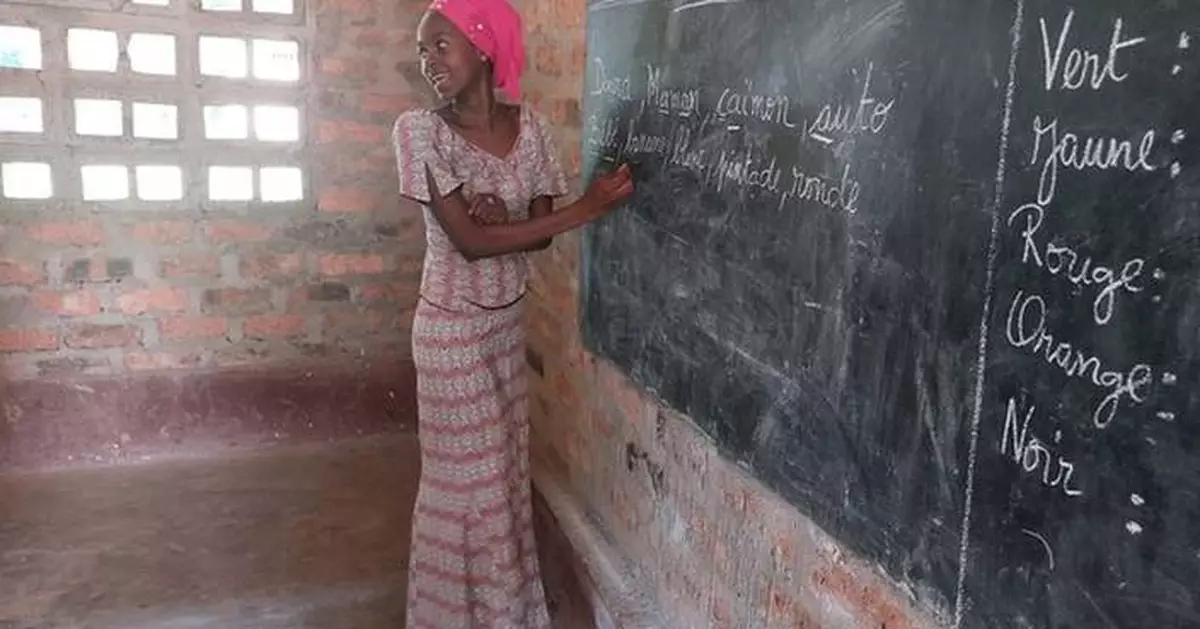 Maman, caïmon, auto
pintade, ronde
Vert :
Jaune :
Rouge :
Orange :
Noir :